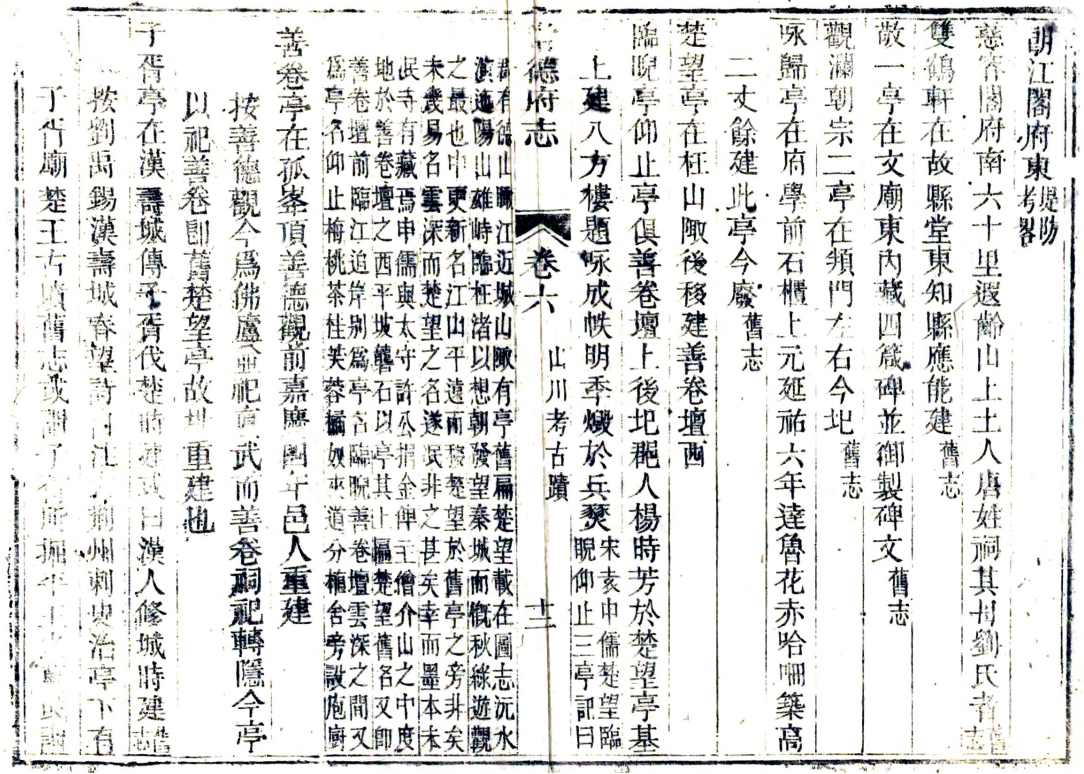 朝江閣府東堤防考畧
慈容閣府南六十里遐齡山上土人唐姓祠其母劉氏者舊志
雙鶴軒在故縣堂東知縣應能建舊志
敬一亭在文廟東內藏四箴碑並御製碑文舊志
觀瀾朝宗二亭在頖門左右今圮舊志
咏歸亭在府學前石櫃上元延祐六年達魯花赤哈珊築高
二丈餘建此亭今廢舊志
楚望亭在枉山陬後移建善卷壇西
臨睨亭仰止亭俱善卷壇上後圮郡人楊時芳於楚望亭基
上建八方樓題咏成帙明季燬於兵燹宋袁申儒楚望臨
睨仰止三亭記曰
德府志 卷六 山川考古蹟 十二
郡有德山瞰江近城山陬有亭舊扁楚望載在圖志沅水
演迤陽山雄峙臨枉渚以想朝發望秦城而慨秋綠遊觀
之最也中更新名江山平遠而移楚望於舊亭之旁非矣
未幾易名雲深而楚望之名遂泯非之甚矣幸而墨本未
泯寺有藏焉申儒與太守許公捐金俾主僧介山之中度
地於善卷壇之西平坡礱石以亭其上榜楚望舊名又卽
善卷壇前臨江迫岸別爲亭名臨睨善卷壇雲深之間又
爲亭名仰止梅桃茶桂芙蓉橘奴夾道分植舍旁設庖厨
善卷亭在孤峯頂善德觀前嘉慶四年邑人重建
按善德觀今爲佛廬並祀真武而善卷祠祀轉隱今亭
以祀善卷卽舊楚望亭故址重建也
子胥亭在漢壽城傳子胥伐楚時建或曰漢人修城時建舊志
按劉禹錫漢壽城春望詩曰江 荆州刺史治亭下有
子胥廟楚王古墳舊志或謂子胥所掘平王